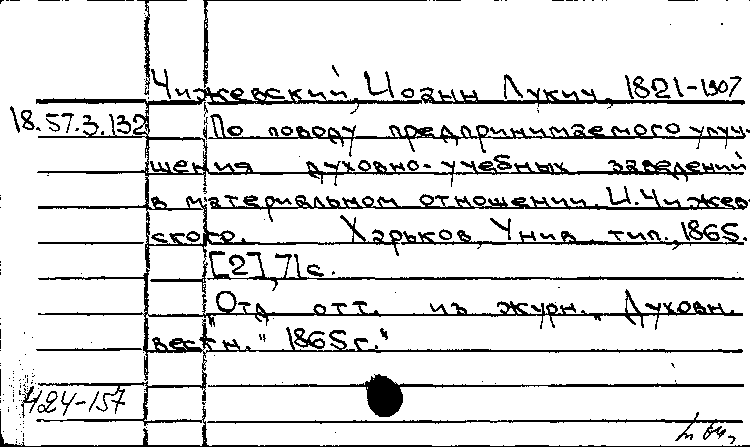 Чижевский, Иоанн Лукич, 1821-1907
18.57.3.132 По поводу предпринимаемого улуч-
шения духовно-учебных заведений
в материальном отношении. И. Чижев-
ского. Харьков, Унив. тип., 1865.
[2], 71 с.
"Отд. отт. из журн. „Духовн.
вестн." 1865 г."
424-157